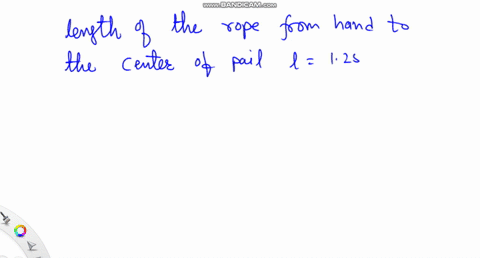 www.BANDICAM.com
length of the rope from hand to
the center of pail l = 1.25